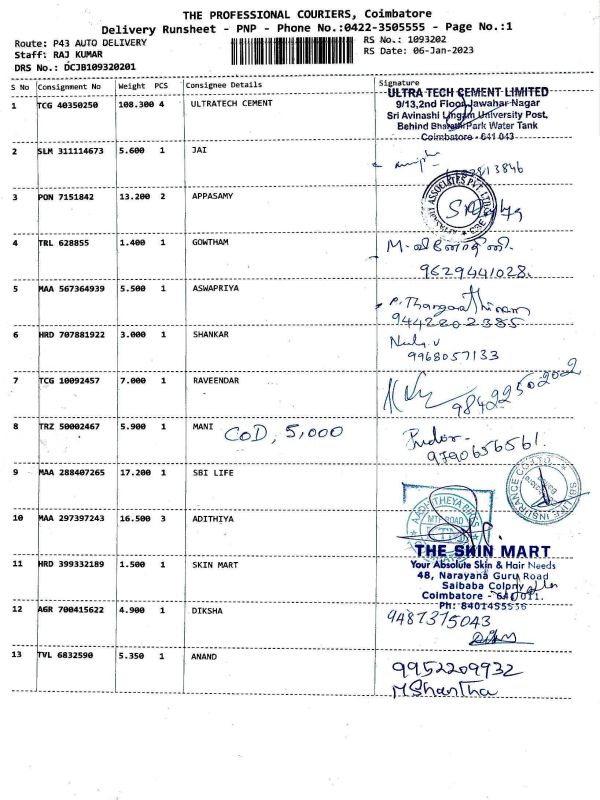 THE PROFESSIONAL COURIERS, Coimbatore
Delivery Runsheet - PNP - Phone No.:0422-3505555 - Page No.:1
Route: P43 AUTO DELIVERY
RS No.: 1093202
Staff: RAJ KUMAR
RS Date: 06-Jan-2023
DRS No.: DCJB109320201
S No Consignment No Weight PCS Consignee Details Signature
1 TCG 40350250 108.300 4 ULTRATECH CEMENT
ULTRA TECH CEMENT LIMITED
9/13,2nd Floor, Jawahar Nagar
Sri Avinashi Lingam University Post,
Behind Bharathi Park Water Tank
Coimbatore - 641 043
2 SLM 311114673 5.600 1 JAI
3 PON 7151842 13.200 2 APPASAMY
ASSOCIATES PVT. LTD.
4 TRL 628855 1.400 1 GOWTHAM
M-வினோதினி.
9629441028.
5 MAA 567364939 5.500 1 ASWAPRIYA
P. Thangarathinam
9442202385
6 HRD 707881922 3.000 1 SHANKAR
9968057133
7 TCG 10092457 7.000 1 RAVEENDAR
8 TRZ 50002467 5.900 1 MANI
COD, 5,000
9790656561.
9 MAA 288407265 17.200 1 SBI LIFE
SBI LIFE INSURANCE CO. LTD.
10 MAA 297397243 16.500 3 ADITHIYA
MTP ROAD
11 HRD 399332189 1.500 1 SKIN MART
THE SKIN MART
Your Absolute Skin & Hair Needs
48, Narayana Guru Road
Saibaba Colony
Coimbatore - 641011.
Ph: 8401455536
12 AGR 700415622 4.900 1 DIKSHA
9487375043
13 TVL 6832590 5.350 1 ANAND
9952209932
M Shantha